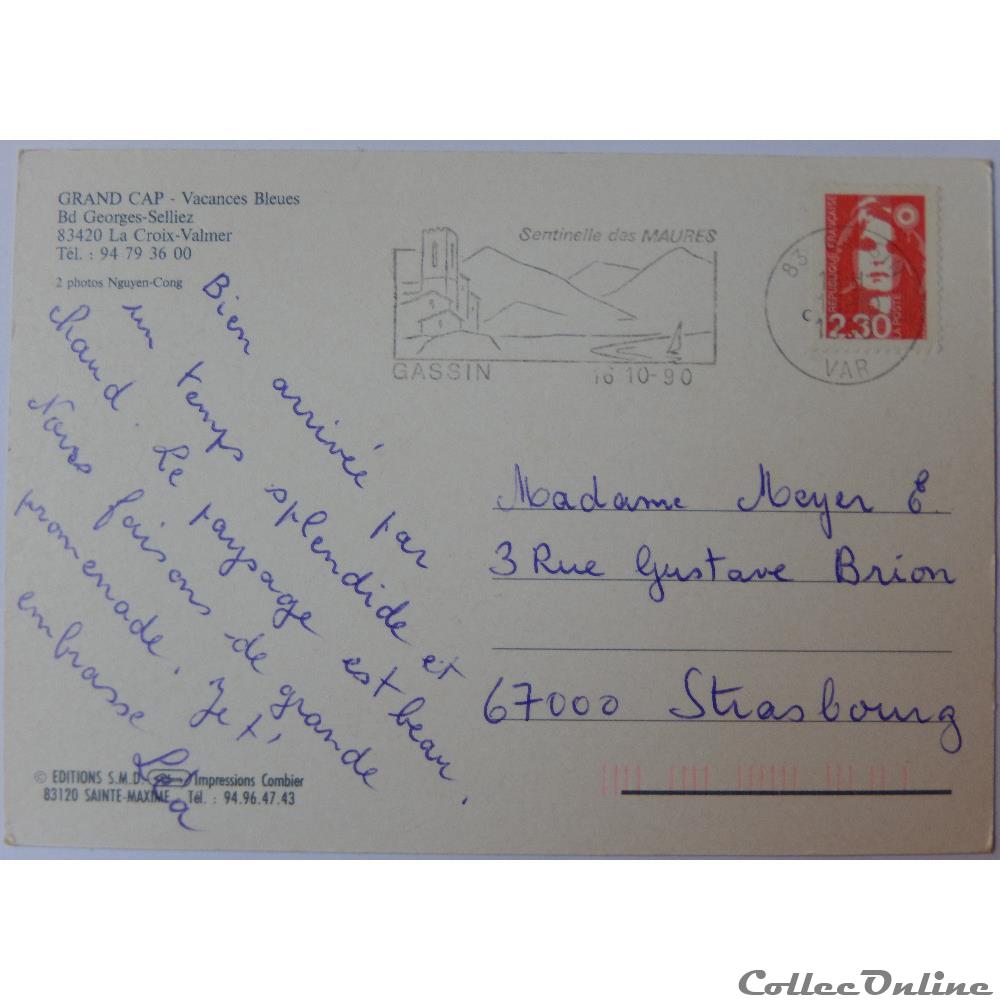 GRAND CAP - Vacances Bleues
Bd Georges-Selliez
83420 La Croix-Valmer
Tél. : 94 79 36 00
2 photos Nguyen-Cong
Sentinelle des MAURES
GASSIN 16 10-90
83
VAR
RÉPUBLIQUE FRANÇAISE
2.30
LA POSTE
Bien arrivée par
un temps splendide et
chaud. Le paysage est beau.
Nous faisons de grande
promenade. Je t'
embrasse
Léa
Madame Meyer E.
3 Rue Gustave Brion
67000 Strasbourg
© EDITIONS S.M.D. Impressions Combier
83120 SAINTE-MAXIME Tél. : 94.96.47.43
CollecOnline